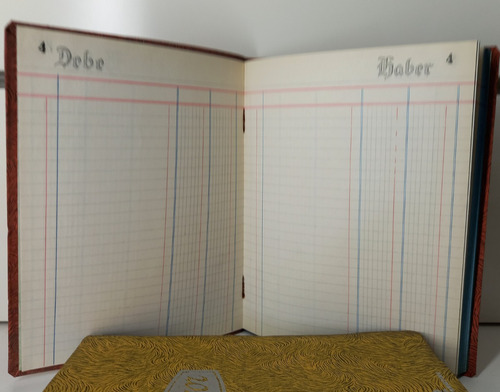 4 Debe
Haber 4